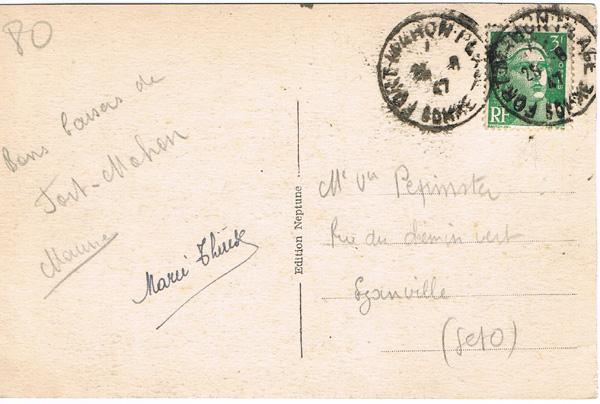 80
Bons baisers de
Fort-Mahon
Marcé Thérèse
Edition Neptune
FORT-MAHON-PLAGE
SOMME
25 8 47
FORT-MAHON-PLAGE
SOMME
25 8 47
3F
RF
Me Vve Pepinster
Rue du chemin vert
Ezanville
(SetO)